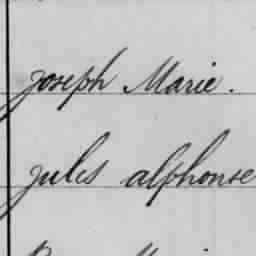 Joseph Marie.
Jules alphonse